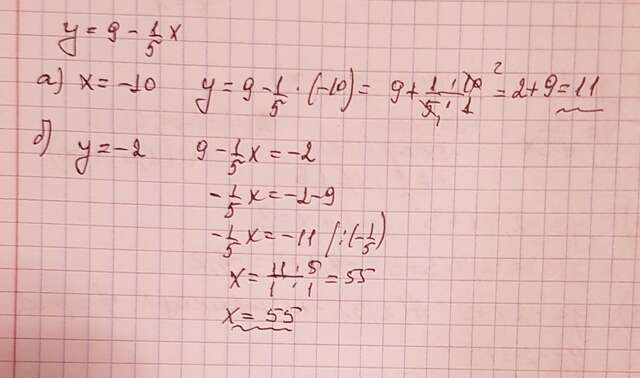 y = 9 - 1/5 x
а) x = -10 y = 9 - 1/5 · (-10) = 9 + (1 · 10)/(5 · 1) = 2 + 9 = 11
б) y = -2 9 - 1/5 x = -2
-1/5 x = -2 - 9
-1/5 x = -11 /:(-1/5)
x = (11 · 5)/(1 · 1) = 55
x = 55